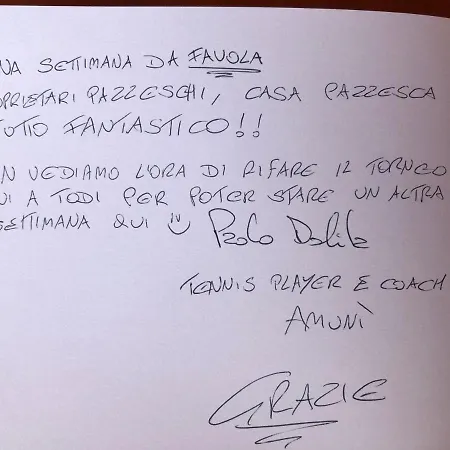 NA SETTIMANA DA FAVOLA
OPRIETARI PAZZESCHI, CASA PAZZESCA
TUTTO FANTASTICO!!
N VEDIAMO L'ORA DI RIFARE IL TORNEO
UI A TODI PER POTER STARE UN ALTRA
SETTIMANA QUI Paolo
TENNIS PLAYER E COACH
AMUNÌ
GRAZIE